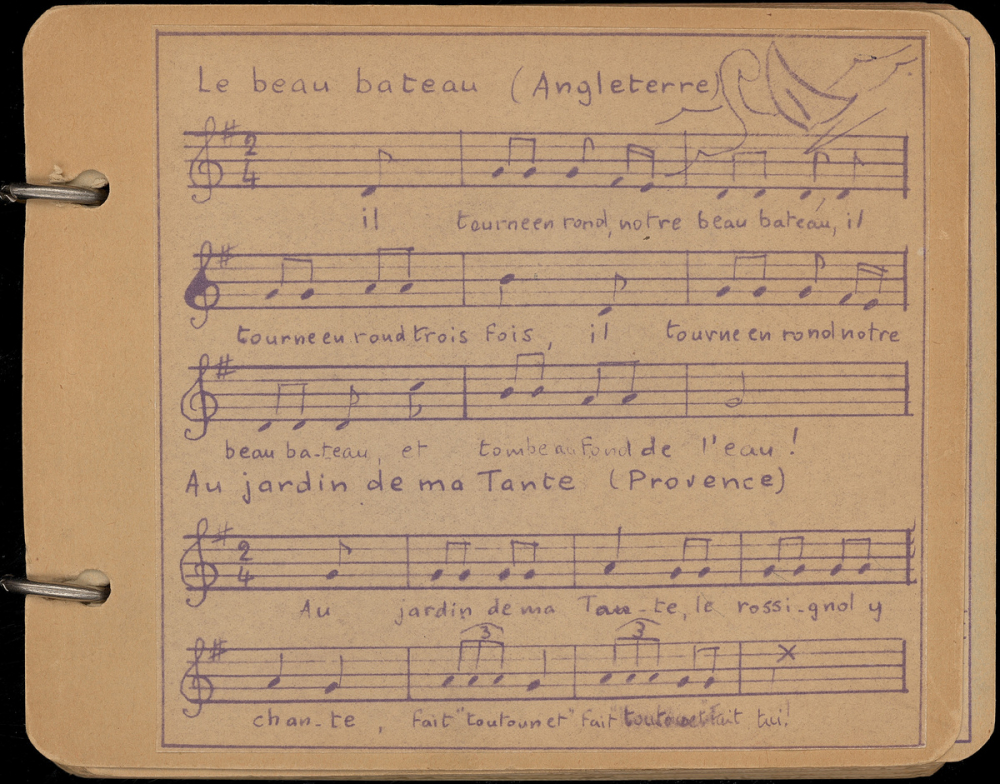 Le beau bateau (Angleterre)
2
4
il tourne en rond, notre beau bateau, il
tourne en rond trois fois, il tourne en rond notre
beau ba-teau, et tombe au fond de l'eau !
Au jardin de ma Tante (Provence)
2
4
Au jardin de ma Tan-te, le rossi-gnol y
3 3
chan-te, fait "toutouret" fait fait tui!